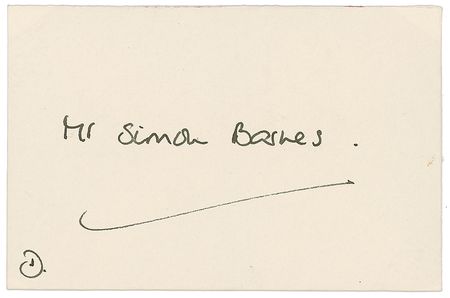 Mr Simon Barnes .
①.